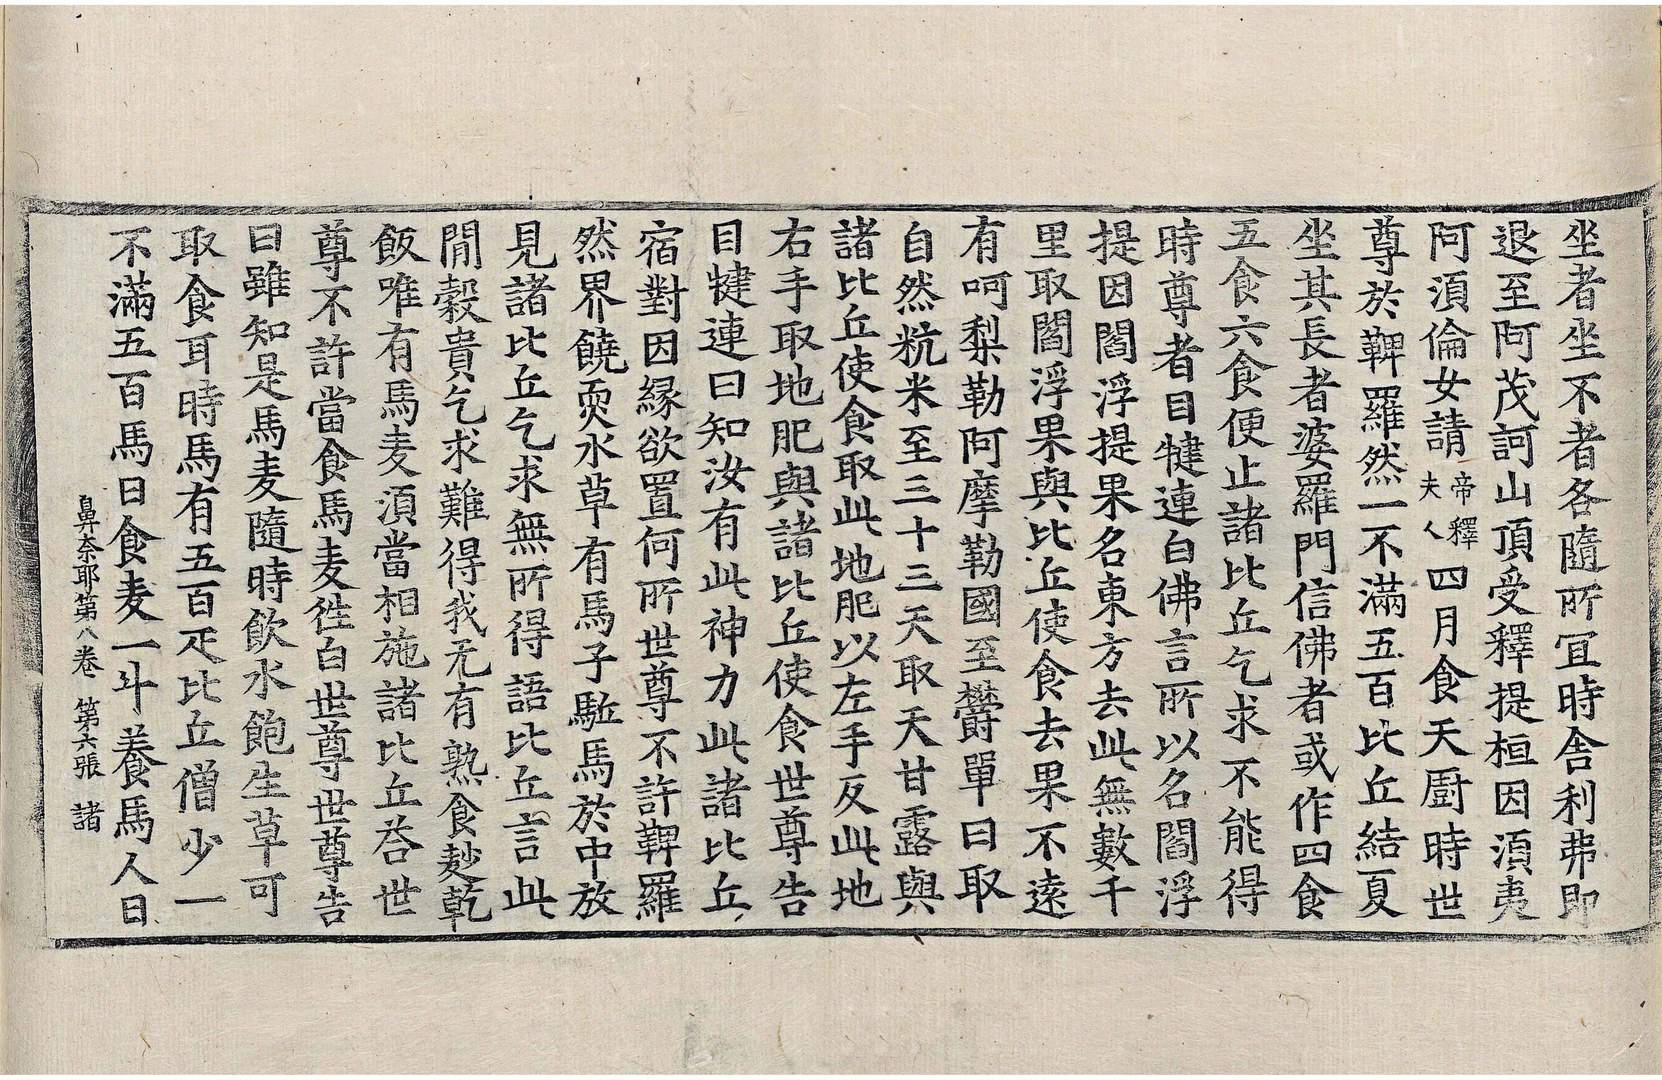 坐者坐不者各隨所宜時舎利弗即
退至阿茂訶山頂受釋提桓因湏夷
阿湏倫女請帝釋夫人四月食天厨時世
尊於鞞羅然一不滿五百比丘結夏
坐其長者婆羅門信佛者或作四食
五食六食便止諸比丘乞求不能得
時尊者目犍連白佛言所以名閻浮
提因閻浮提果名東方去此無數千
里取閻浮果與比丘使食去果不遠
有呵梨勒阿摩勒國至欝單曰取
自然粇米至三十三天取天甘露與
諸比丘使食取此地肥以左手反此地
右手取地肥與諸比丘使食世尊告
目犍連曰知汝有此神力此諸比丘
宿對因緣欲置何所世尊不許鞞羅
然界饒耎水草有馬子駈馬於中放
見諸比丘乞求無所得語比丘言此
閒糓貴乞求難得我无有熟食麨乾
飯唯有馬麦湏當相施諸比丘荅世
尊不許當食馬麦徃白世尊世尊告
曰雖知是馬麦隨時飲水飽生草可
取食耳時馬有五百疋比丘僧少一
不滿五百馬日食麦一斗養馬人日
鼻奈耶第八卷 第六張 諸